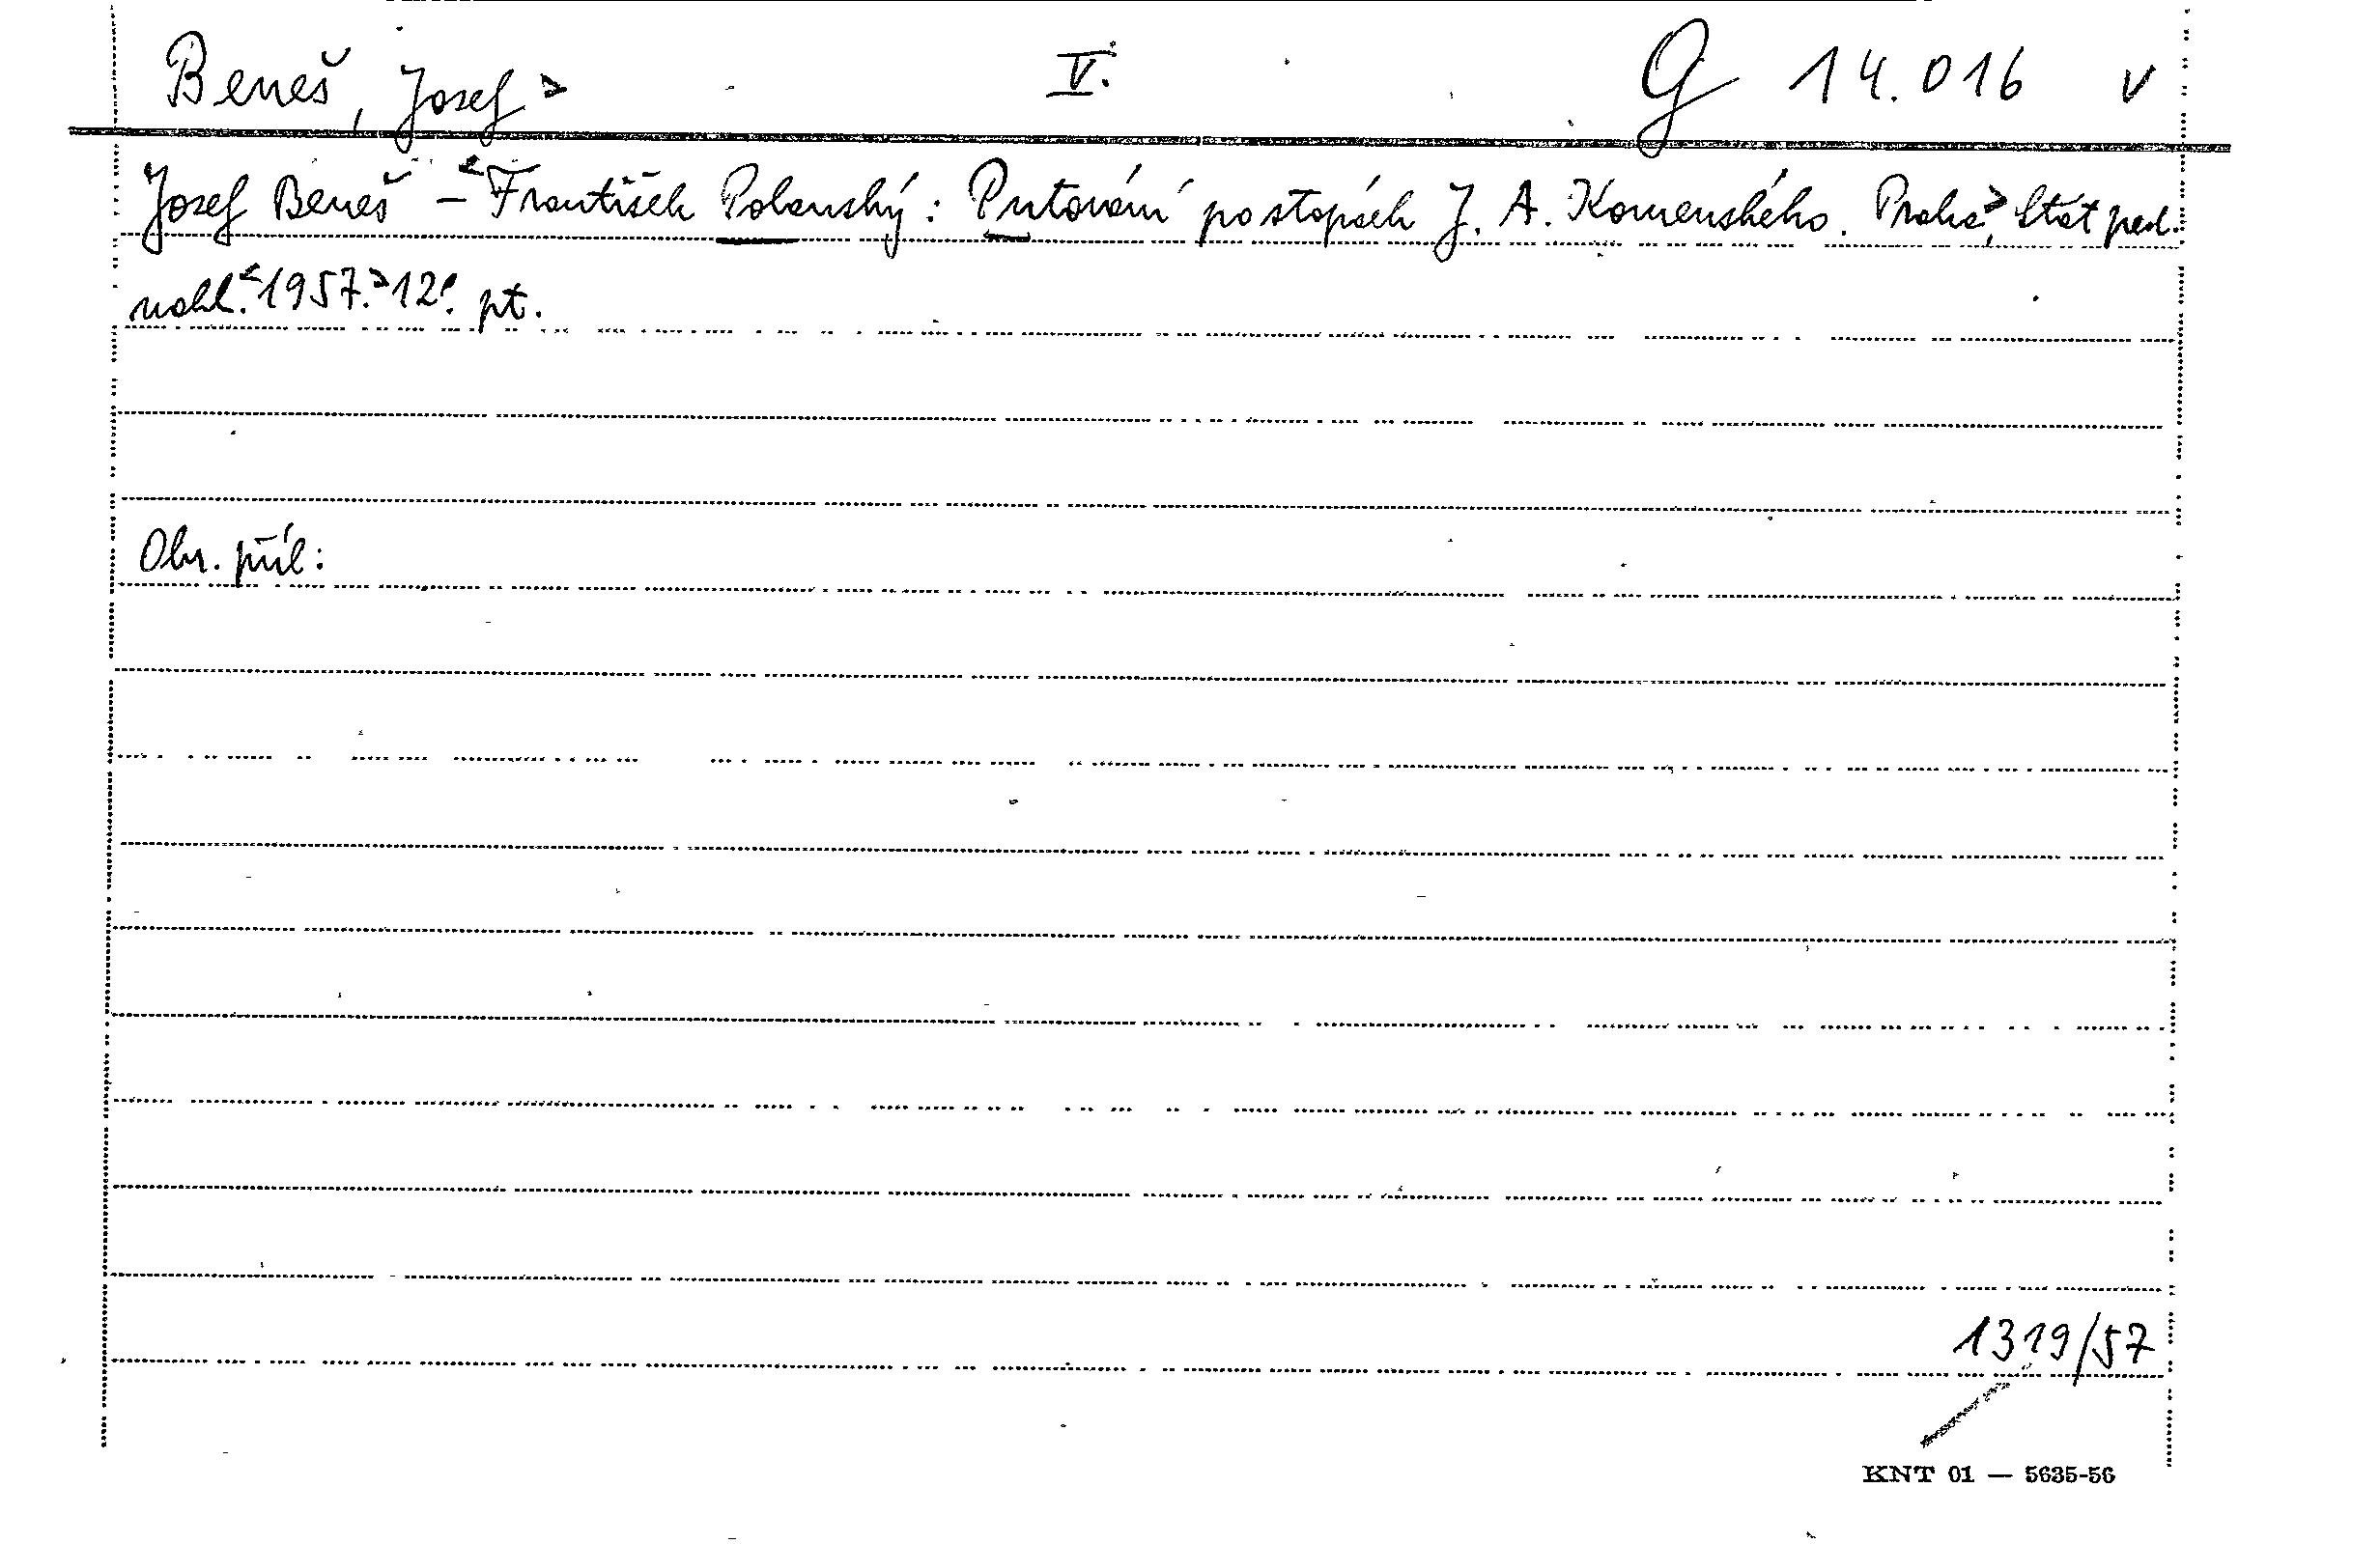 Beneš, Josef > V. G 14.016 v
Josef Beneš – < František Polanský : Putování po stopách J. A. Komenského. Praha >, Stát. ped.
nakl. < 1957. > 12°. pt.
Obr. příl :
1319/57
KNT 01 — 5635-56